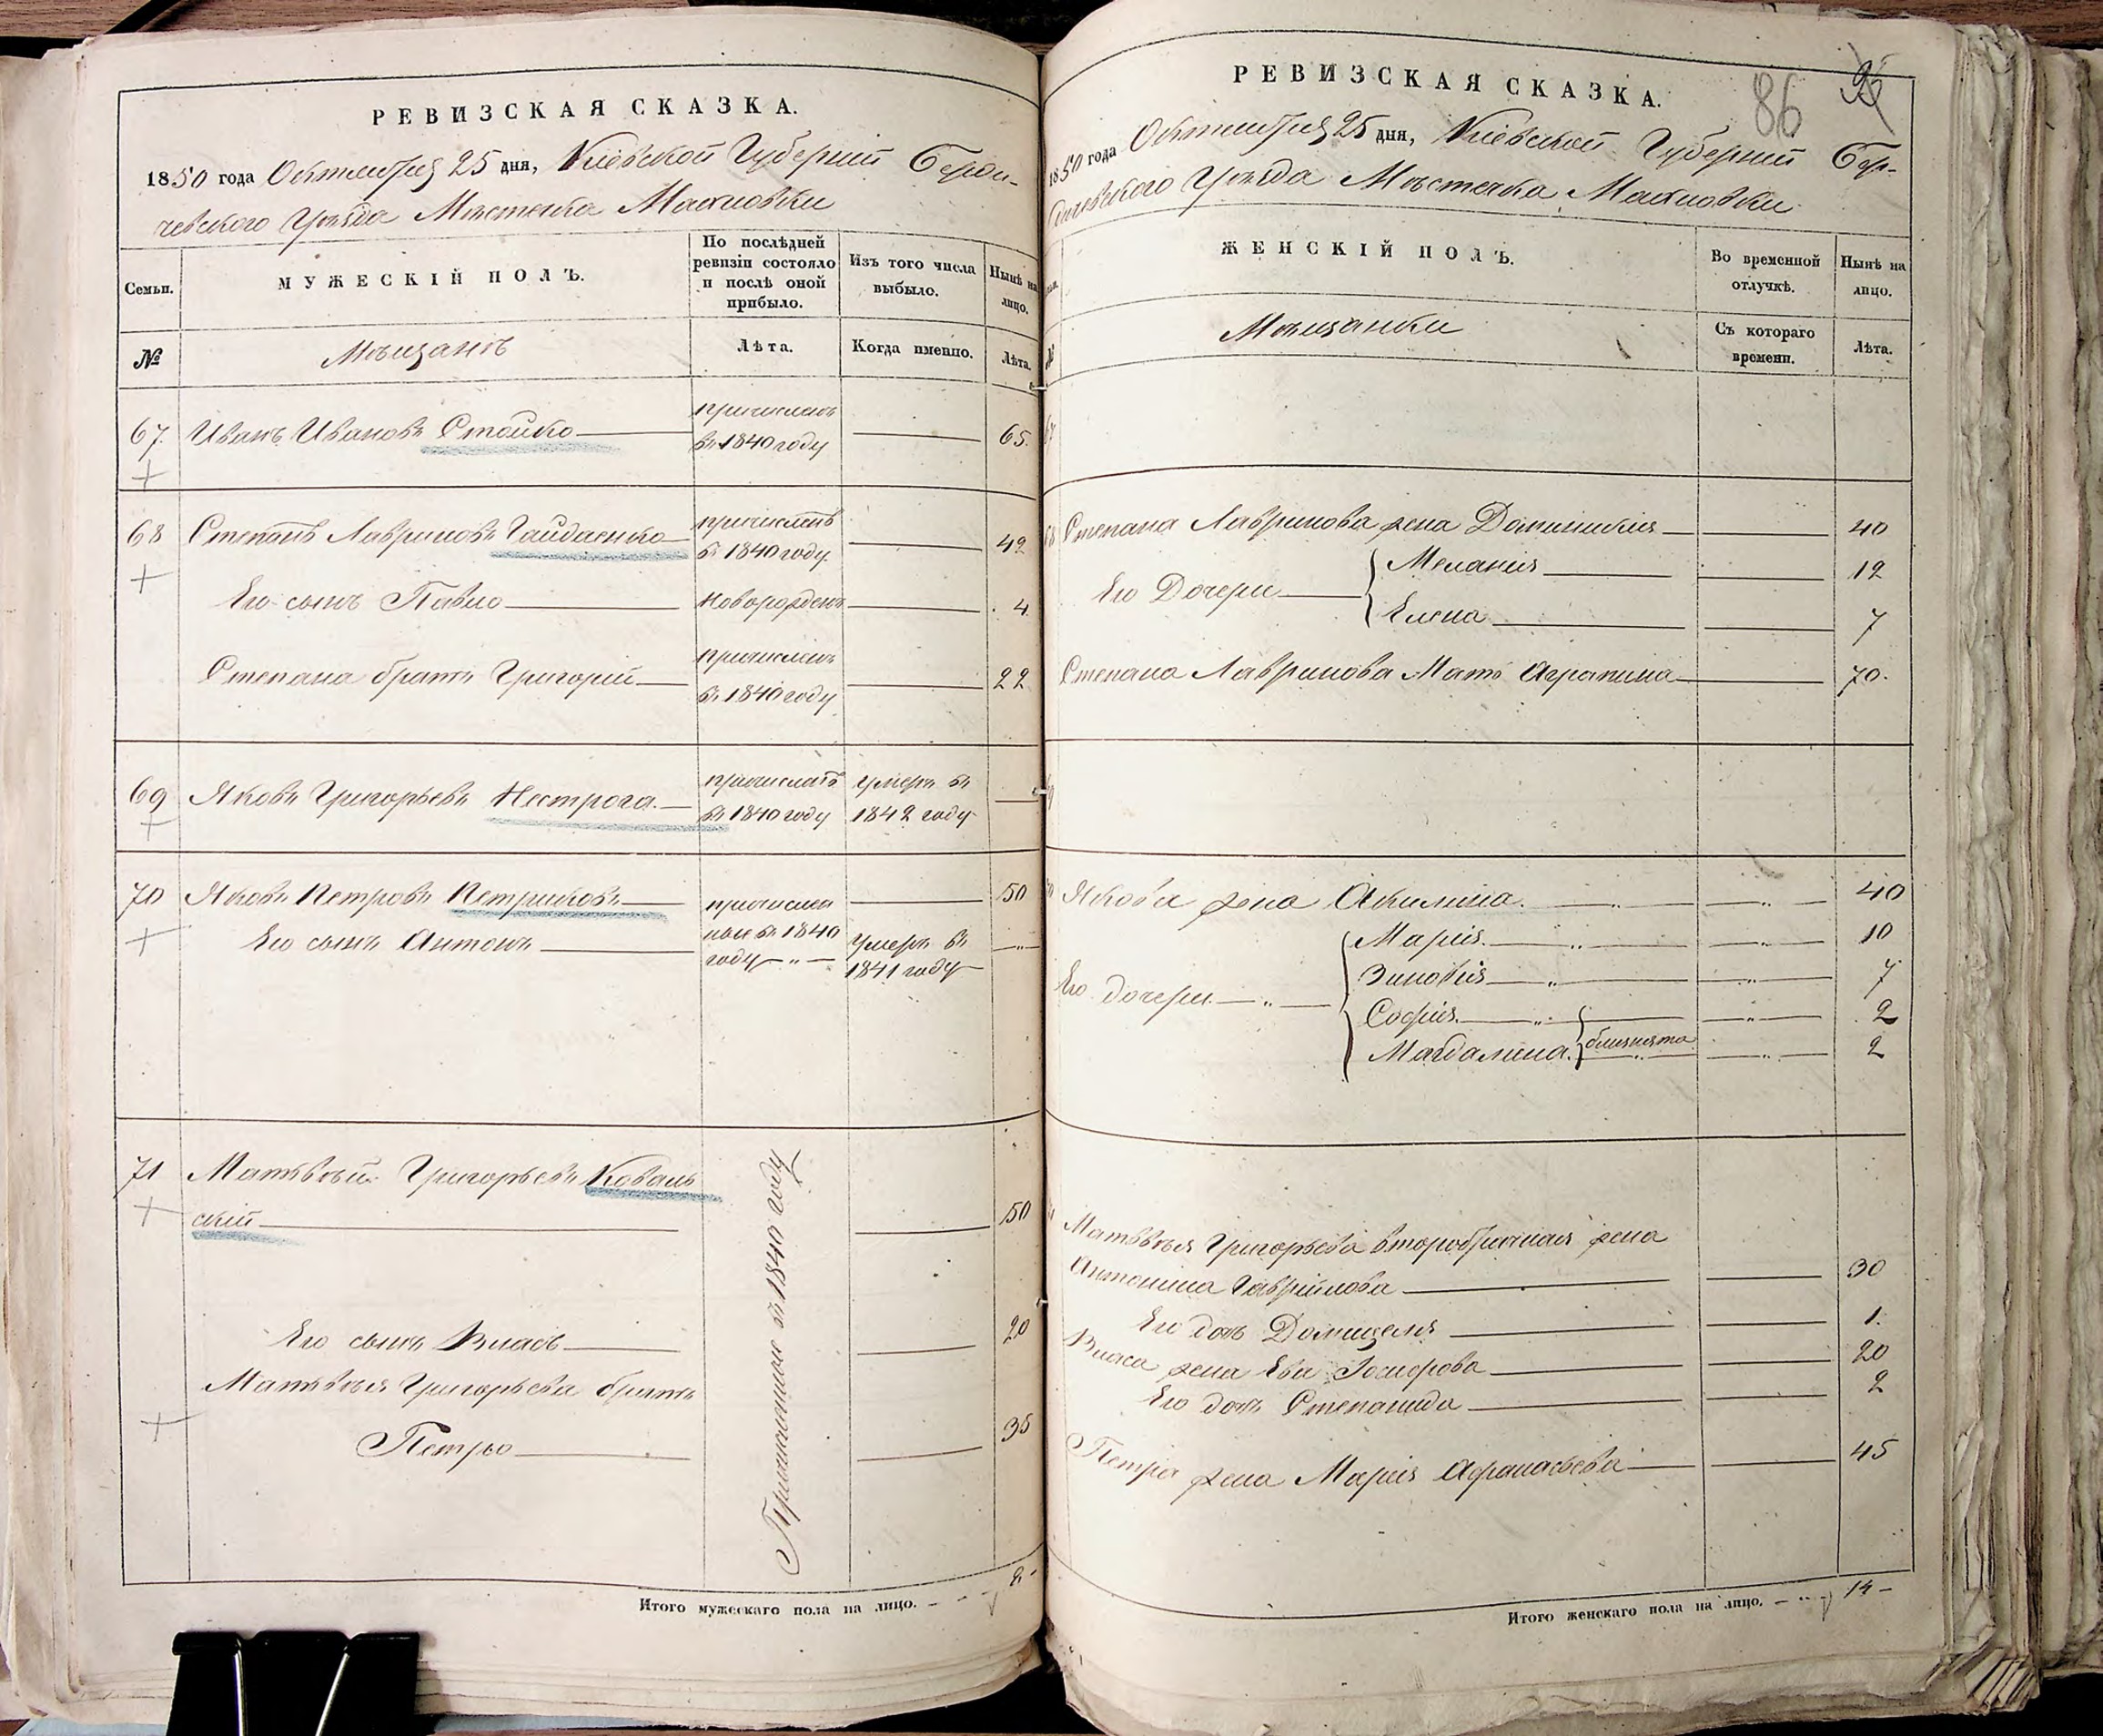 РЕВИЗСКАЯ СКАЗКА.
1850 года Октября 25 дня, Кіевской Губерніи Берди-
чевского Уѣзда Мѣстечка Махновки
Семьи.
МУЖЕСКІЙ ПОЛЪ.
По послѣдней ревизіи состояло и послѣ оной прибыло.
Изъ того числа выбыло.
Нынѣ на лицо.
№
Мѣщанъ
Лѣта.
Когда именно.
Лѣта.
67. Иванъ Ивановъ Стойко причисленъ въ 1840 году 65.
68 Степанъ Лавриновъ Гайдаенко причисленъ въ 1840 году. 42
Его сынъ Павло новорожденъ 4
Степана братъ Григорій причисленъ въ 1840 году 22
69 Яковъ Григорьевъ Нестрога. причисленъ въ 1840 году умеръ въ 1842 году
70 Яковъ Петровъ Петриковъ 50
причислены въ 1840 году
Его сынъ Антонъ умеръ въ 1841 году
71 Матвѣй Григорьевъ Коваль
скій 50
Причислены въ 1840 году
Его сынъ Власъ 20
Матвѣя Григорьева братъ
Петро 35
Итого мужескаго пола на лицо. 8-
РЕВИЗСКАЯ СКАЗКА.
86
1850 года Октября 25 дня, Кіевской Губерніи Бер-
дичевского Уѣзда Мѣстечка Махновки
ЖЕНСКІЙ ПОЛЪ.
Во временной отлучкѣ.
Нынѣ на лицо.
Мѣщанки
Съ котораго времени.
Лѣта.
Степана Лавринова жена Доминикія 40
Его Дочери Меланія 12
Елена 7
Степана Лавринова Мать Аграпина 70.
Якова жена Акилина. 40
Его дочери Марія. 10
Зиновія 7
Софія. 2
Магдалина. близнята 2
Матвѣя Григорьева второбрачная жена
Антонина Гаврійлова 30
Его дочь Домицеля 1.
Власа жена Ева 20
Его дочь Степанида 2
Петра жена Марія Афанасьева 45
Итого женскаго пола на лицо. 14-